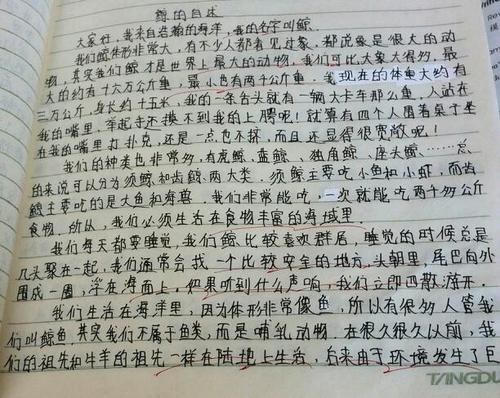 鲸的自述
大家好，我来自浩瀚的海洋，我的名字叫鲸。
我们鲸体形非常大，有不少人都看见过象，都说象是很大的动
物，其实我们鲸才是世界上最大的动物，我们可比大象大得多，最
大的约有十六万公斤重，最小也有两千公斤重，我现在的体重大约有
三万公斤，身长约十五米，我的一条舌头就有一辆大卡车那么重，人站在
我的嘴里，举起手还摸不到我的上腭呢！就算有四个人围着桌子坐
在我的嘴里打扑克，还是一点也不挤，而且还显得很宽敞呢！
我们的种类也非常多，有虎鲸、蓝鲸、独角鲸、座头鲸……总
的来说可以分为须鲸和齿鲸两大类，须鲸主要吃小鱼和小虾，而齿
鲸主要吃的是大鱼和海兽，我们非常能吃，一次就能吃两千多公斤
食物，所以，我们必须生活在食物丰富的海域里。
我们每天都要睡觉，我们鲸比较喜欢群居，睡觉的时候总是
几头聚在一起，我们通常会找一个比较安全的地方，头朝里，尾巴向外
围成一圈，浮在海面上，如果听到什么声响，我们立即四散游开。
我们生活在海洋里，因为体形非常像鱼，所以有很多人管我
们叫鲸鱼，其实我们不属于鱼类，而是哺乳动物，在很久很久以前，我
们的祖先和牛羊的祖先一样在陆地上生活，后来由于环境发生了巨
TANGDU